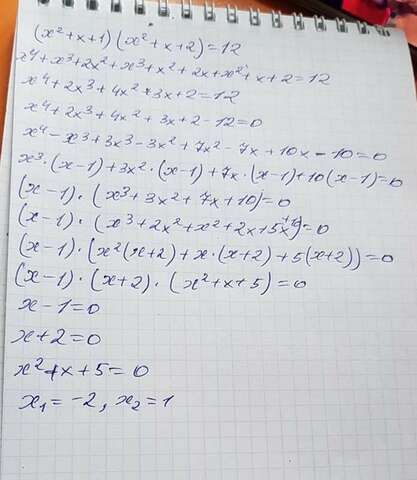 (x²+x+1)(x²+x+2)=12
x⁴+x³+2x²+x³+x²+2x+x²+x+2=12
x⁴+2x³+4x²+3x+2=12
x⁴+2x³+4x²+3x+2-12=0
x⁴-x³+3x³-3x²+7x²-7x+10x-10=0
x³·(x-1)+3x²·(x-1)+7x·(x-1)+10(x-1)=0
(x-1)·(x³+3x²+7x+10)=0
(x-1)·(x³+2x²+x²+2x+5x+10)=0
(x-1)·(x²(x+2)+x·(x+2)+5(x+2))=0
(x-1)·(x+2)·(x²+x+5)=0
x-1=0
x+2=0
x²+x+5=0
x₁=-2, x₂=1